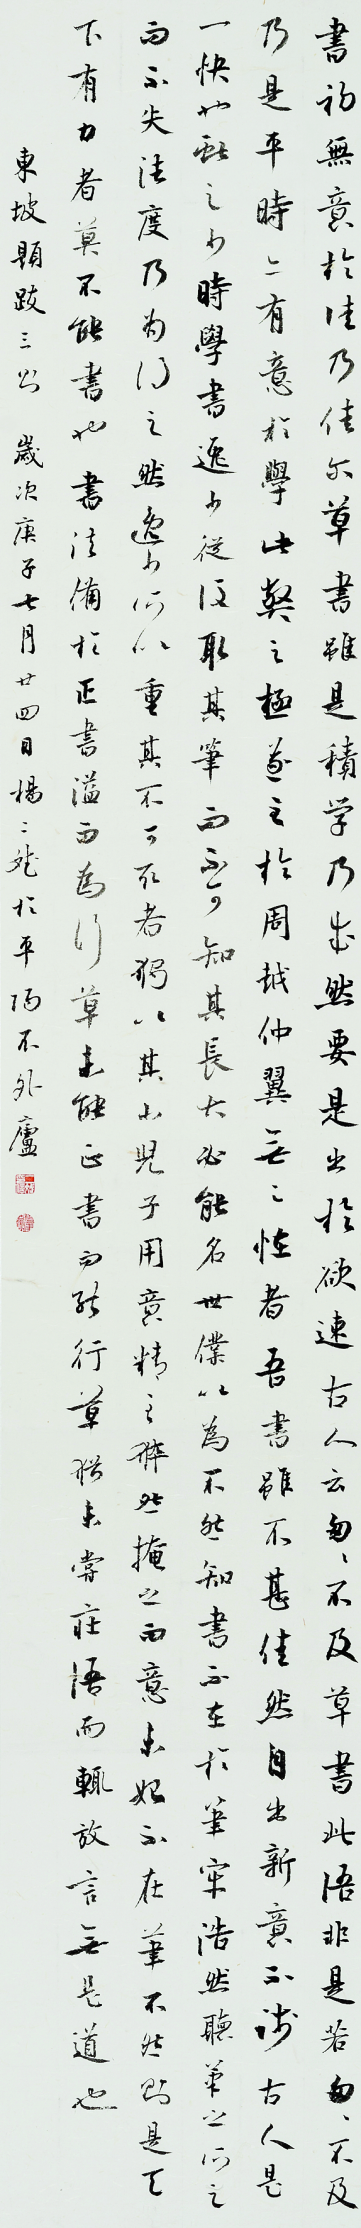 書初無意於佳乃佳尔草書雖是積学乃成然要是出於欲速古人云匆〻不及草書此語非是若匆〻不及
乃是平時亦有意於學此弊之極遂至於周越仲翼無足怪者吾書雖不甚佳然自出新意不踐古人是
一快也獻之少時學書逸少從後取其筆而不可知其長大必能名世僕以為不然知書不在於筆牢浩然聽筆之所之
而不失法度乃為得之然逸少所以重其不可取者獨以其小兒子用意精至猝然掩之而意未始不在筆不然則是天
下有力者莫不能書也書法備於正書溢而為行草未能正書而能行草猶未嘗莊語而輒放言無是道也
東坡題跋三則 歲次庚子七月廿四日楊二於平陽不外廬